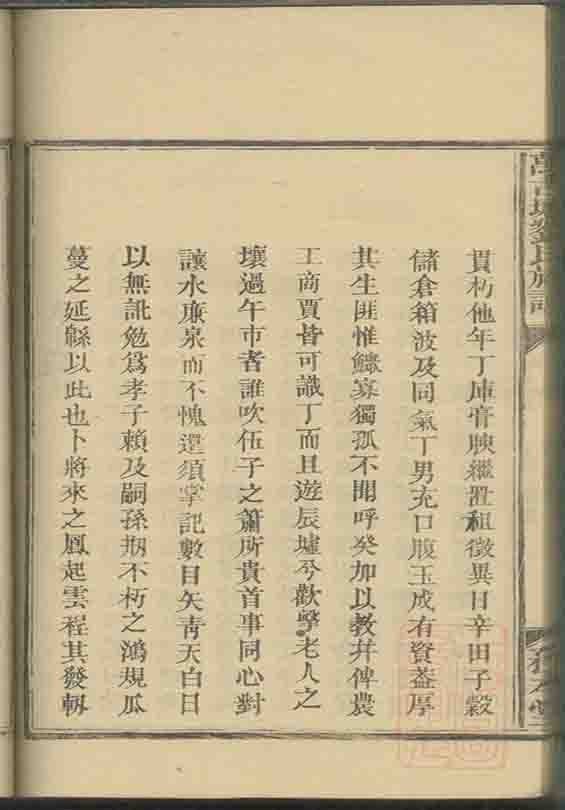 劉氏族
貫朽他年丁庫膏腴繼置租徵異日辛田子穀
儲倉箱波及同氣丁男充口腹玉成有資葢厚
其生匪惟鰥寡獨孤不聞呼癸加以教并俾農
工商賈皆可識丁而且遊辰墟兮歡擊老人之
壤過午市者誰吹伍子之簫所貴首事同心對
讓水亷泉而不愧還須掌記數目矢靑天白日
以無訛勉爲孝子賴及嗣孫剏不朽之鴻規瓜
蔓之延緜以此也卜將來之鳳起雲程其發軔